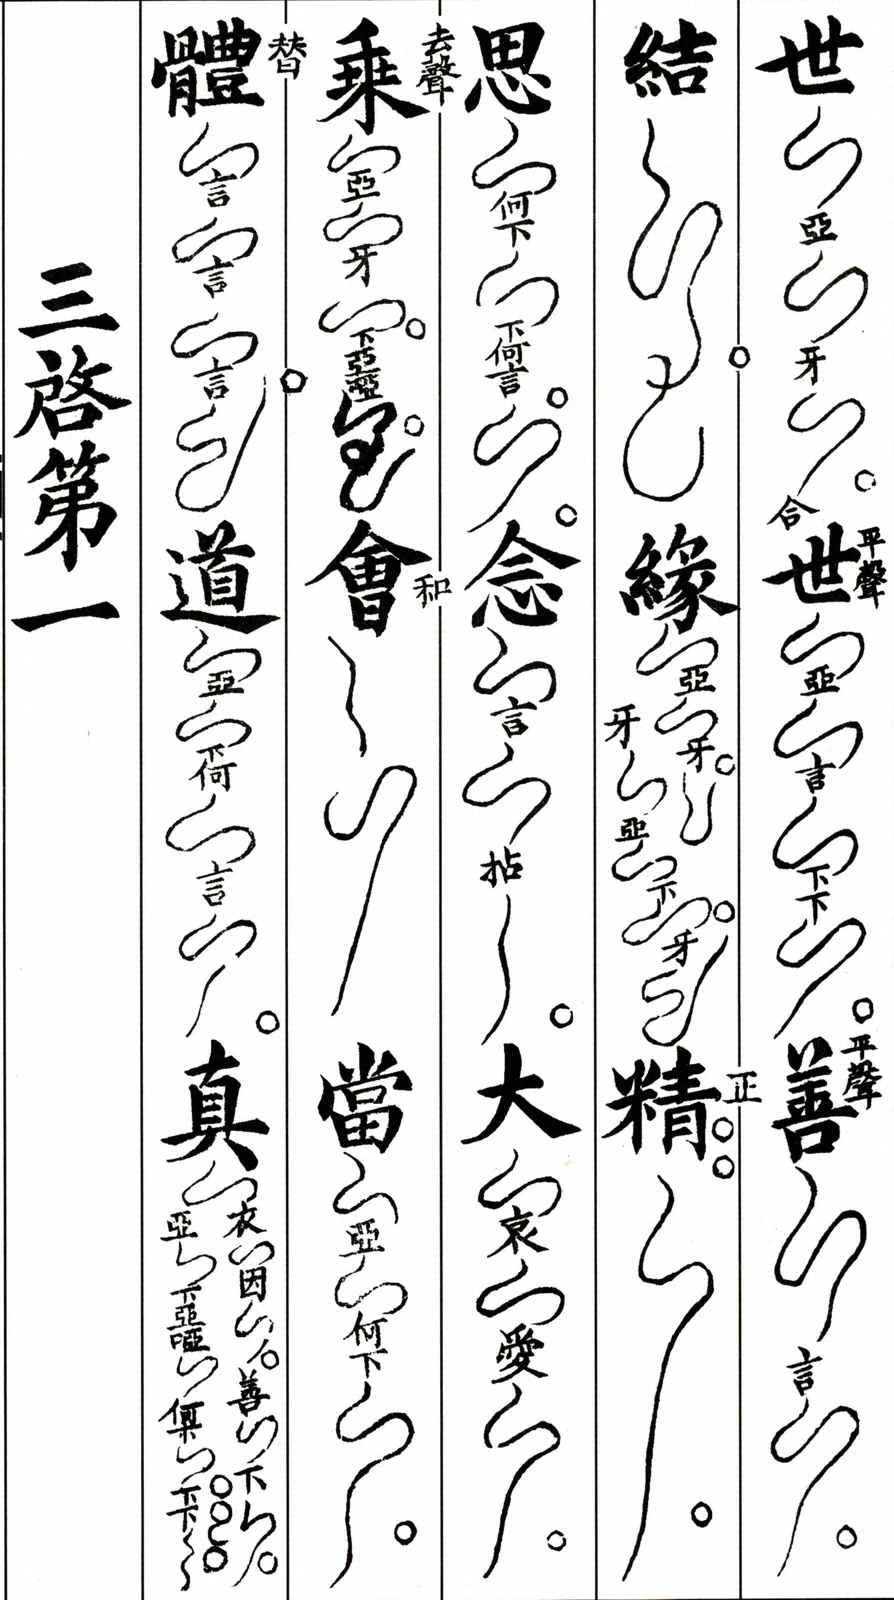 世亞牙合世平聲亞言下下善平聲言
結緣亞牙牙亞下牙精正
思何下下何言念言拈大哀愛
乘去聲亞牙下亞啞會和當亞何下
體替言言言道亞下何言真衣因善下亞下亞啞何下下
三啓第一